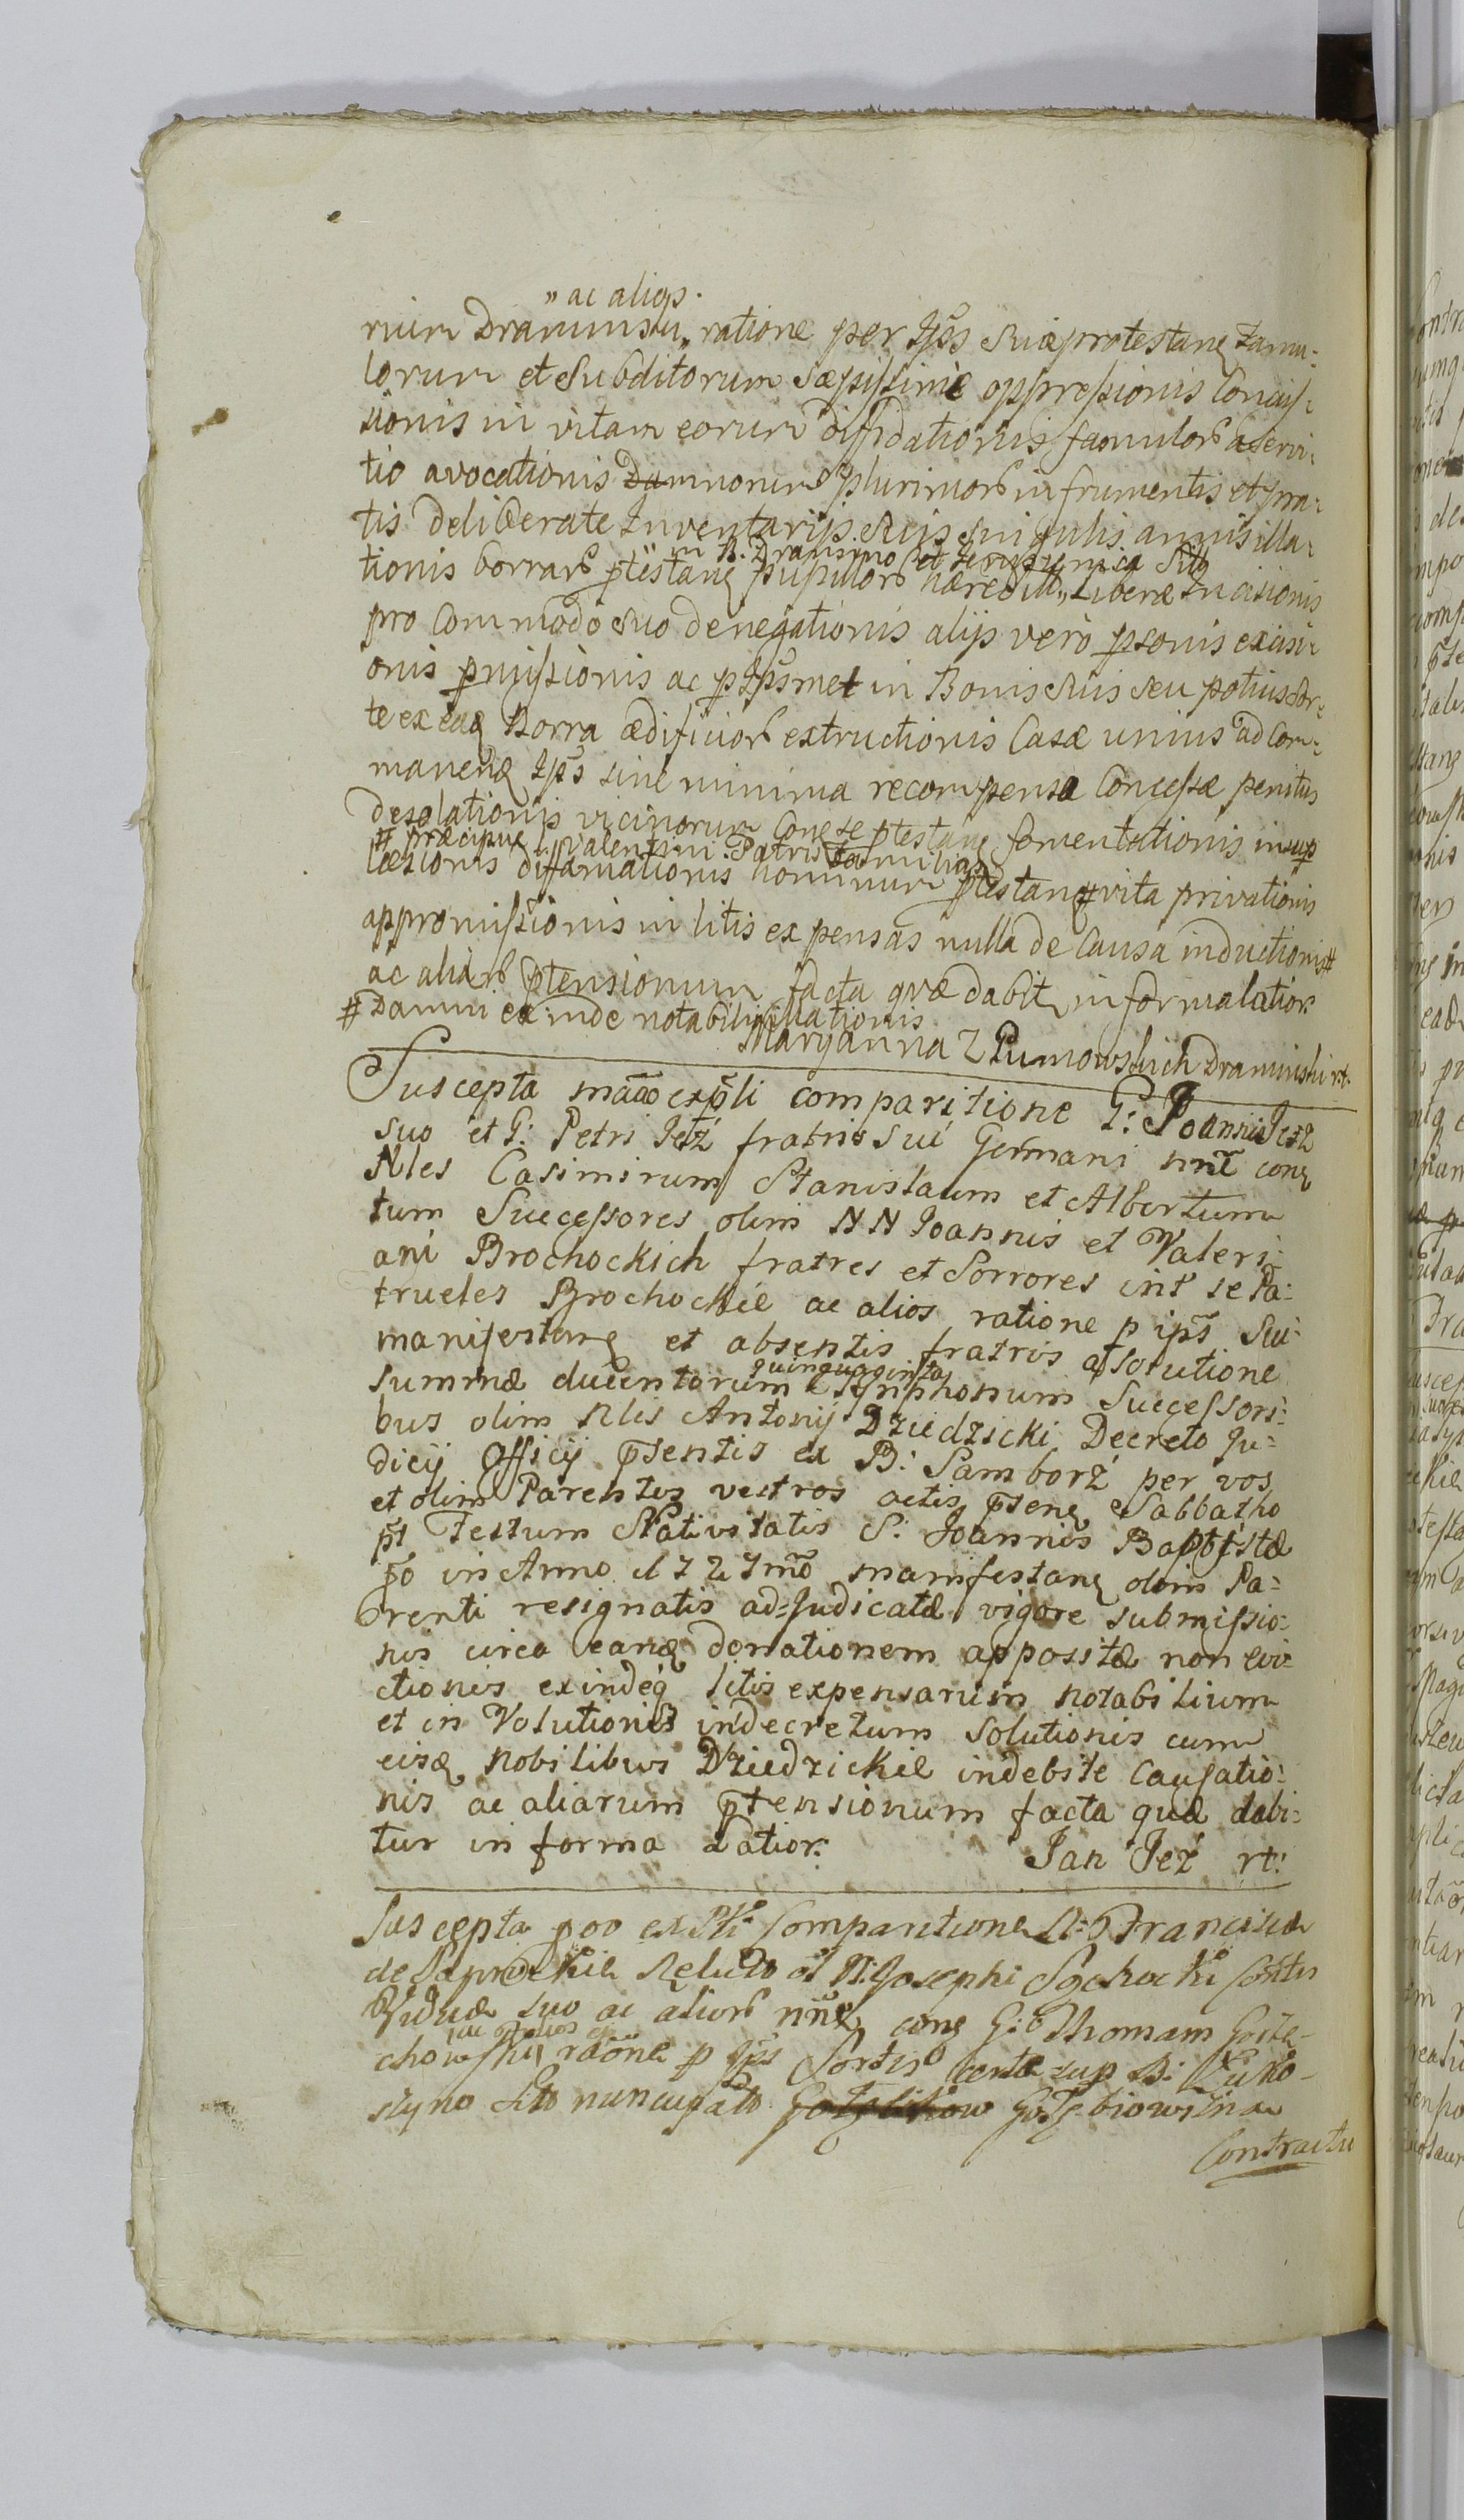 „ac aliqs.
rium Draminski„ ratione per Ips̃ Suiaeprotestanę Famu:
lorum et Subditorum Saepissimè oppressionis Concus:
sionis in vitam eorum diffidationis famulorũ a servi:
tio avocationis Damnorum plurimorũ in frumentis et pra:
tis deliberate Inventarijs Suis singulis annis illa:
in B. Dramino et
tionis borrarũ p̃testanę pupillorũ haeredit„ Liberae Incisionis
pro Commodo Suo denegationis alijs vero psonis excisi:
onis pmissionis ac p Ips̃met in Bonis Suis seu potius Sor:
te ex eaq Borra aedificiorũ extructionis Casae unius ad Com:
manenq Ips̃ sine minima recompensa Concessae penitus
desolationis vicinorum Cone se p̃testanę fomentationis insup
# praecipue Valentini Patris familias
laesionis diffamationis hominum p̃testanę # vita privationis
appromissionis in litis expensas nulla de Causa inductionis #
ac aliarũ p̃tensionum facta quae dabit in forma lation:
# Damni exinde notabilis illationis
Maryanna z Rumowskich Draminski rt.
Suscepta mãao exp̃li comparitione G: Joannis Jeż
suo et G: Petri Jeż fratris sui Germani nne conę
Nles Casimirum Stanislaum et Albertum
tum Successores olim NN Joannis et Valeri:
ani Brochockich fratres et Sorrores int' se Pa:
trueles Brochockie ac alios ratione p ips̃ Sui:
manifestanę et absentis fratris a solutione
quinquaginta
Summae ducentorum Tÿnphonum Successori:
bus olim Nlis Antonij Dziedzicki Decreto Ju:
dicij Officij p̃sentis ex B: Samborz per vos
et olim Parentes vestros actis p̃senę Sabbatho
p̃t Festum Nativitatis S: Joannis Baptistae
p̃o in Anno 1727mõ manifestanę olim Pa:
renti resignatis ad=Judicatae vigore submissio:
nis circa eanq donationem appositae non evi:
ctionis exindeq litis expensarum notabilium
et in Volutionis in decretum solutionis cum
eisq Nobilibus Dziedzickie indebite Causatio:
nis ac aliarum p̃tensionum facta quae dabi:
tur in forma lation:
Jan Jeż rt:
Suscepta poo exPti Comparitione N: Francisca
de Relicto ol N: Josephi Sochocki Contis
Viduae suo ac aliorũ nne conę G: Thomam Goste-
iac alios
chowski raõne p Ips̃ Sortis certae sup B:
styno Sito nuncupato
Contractu